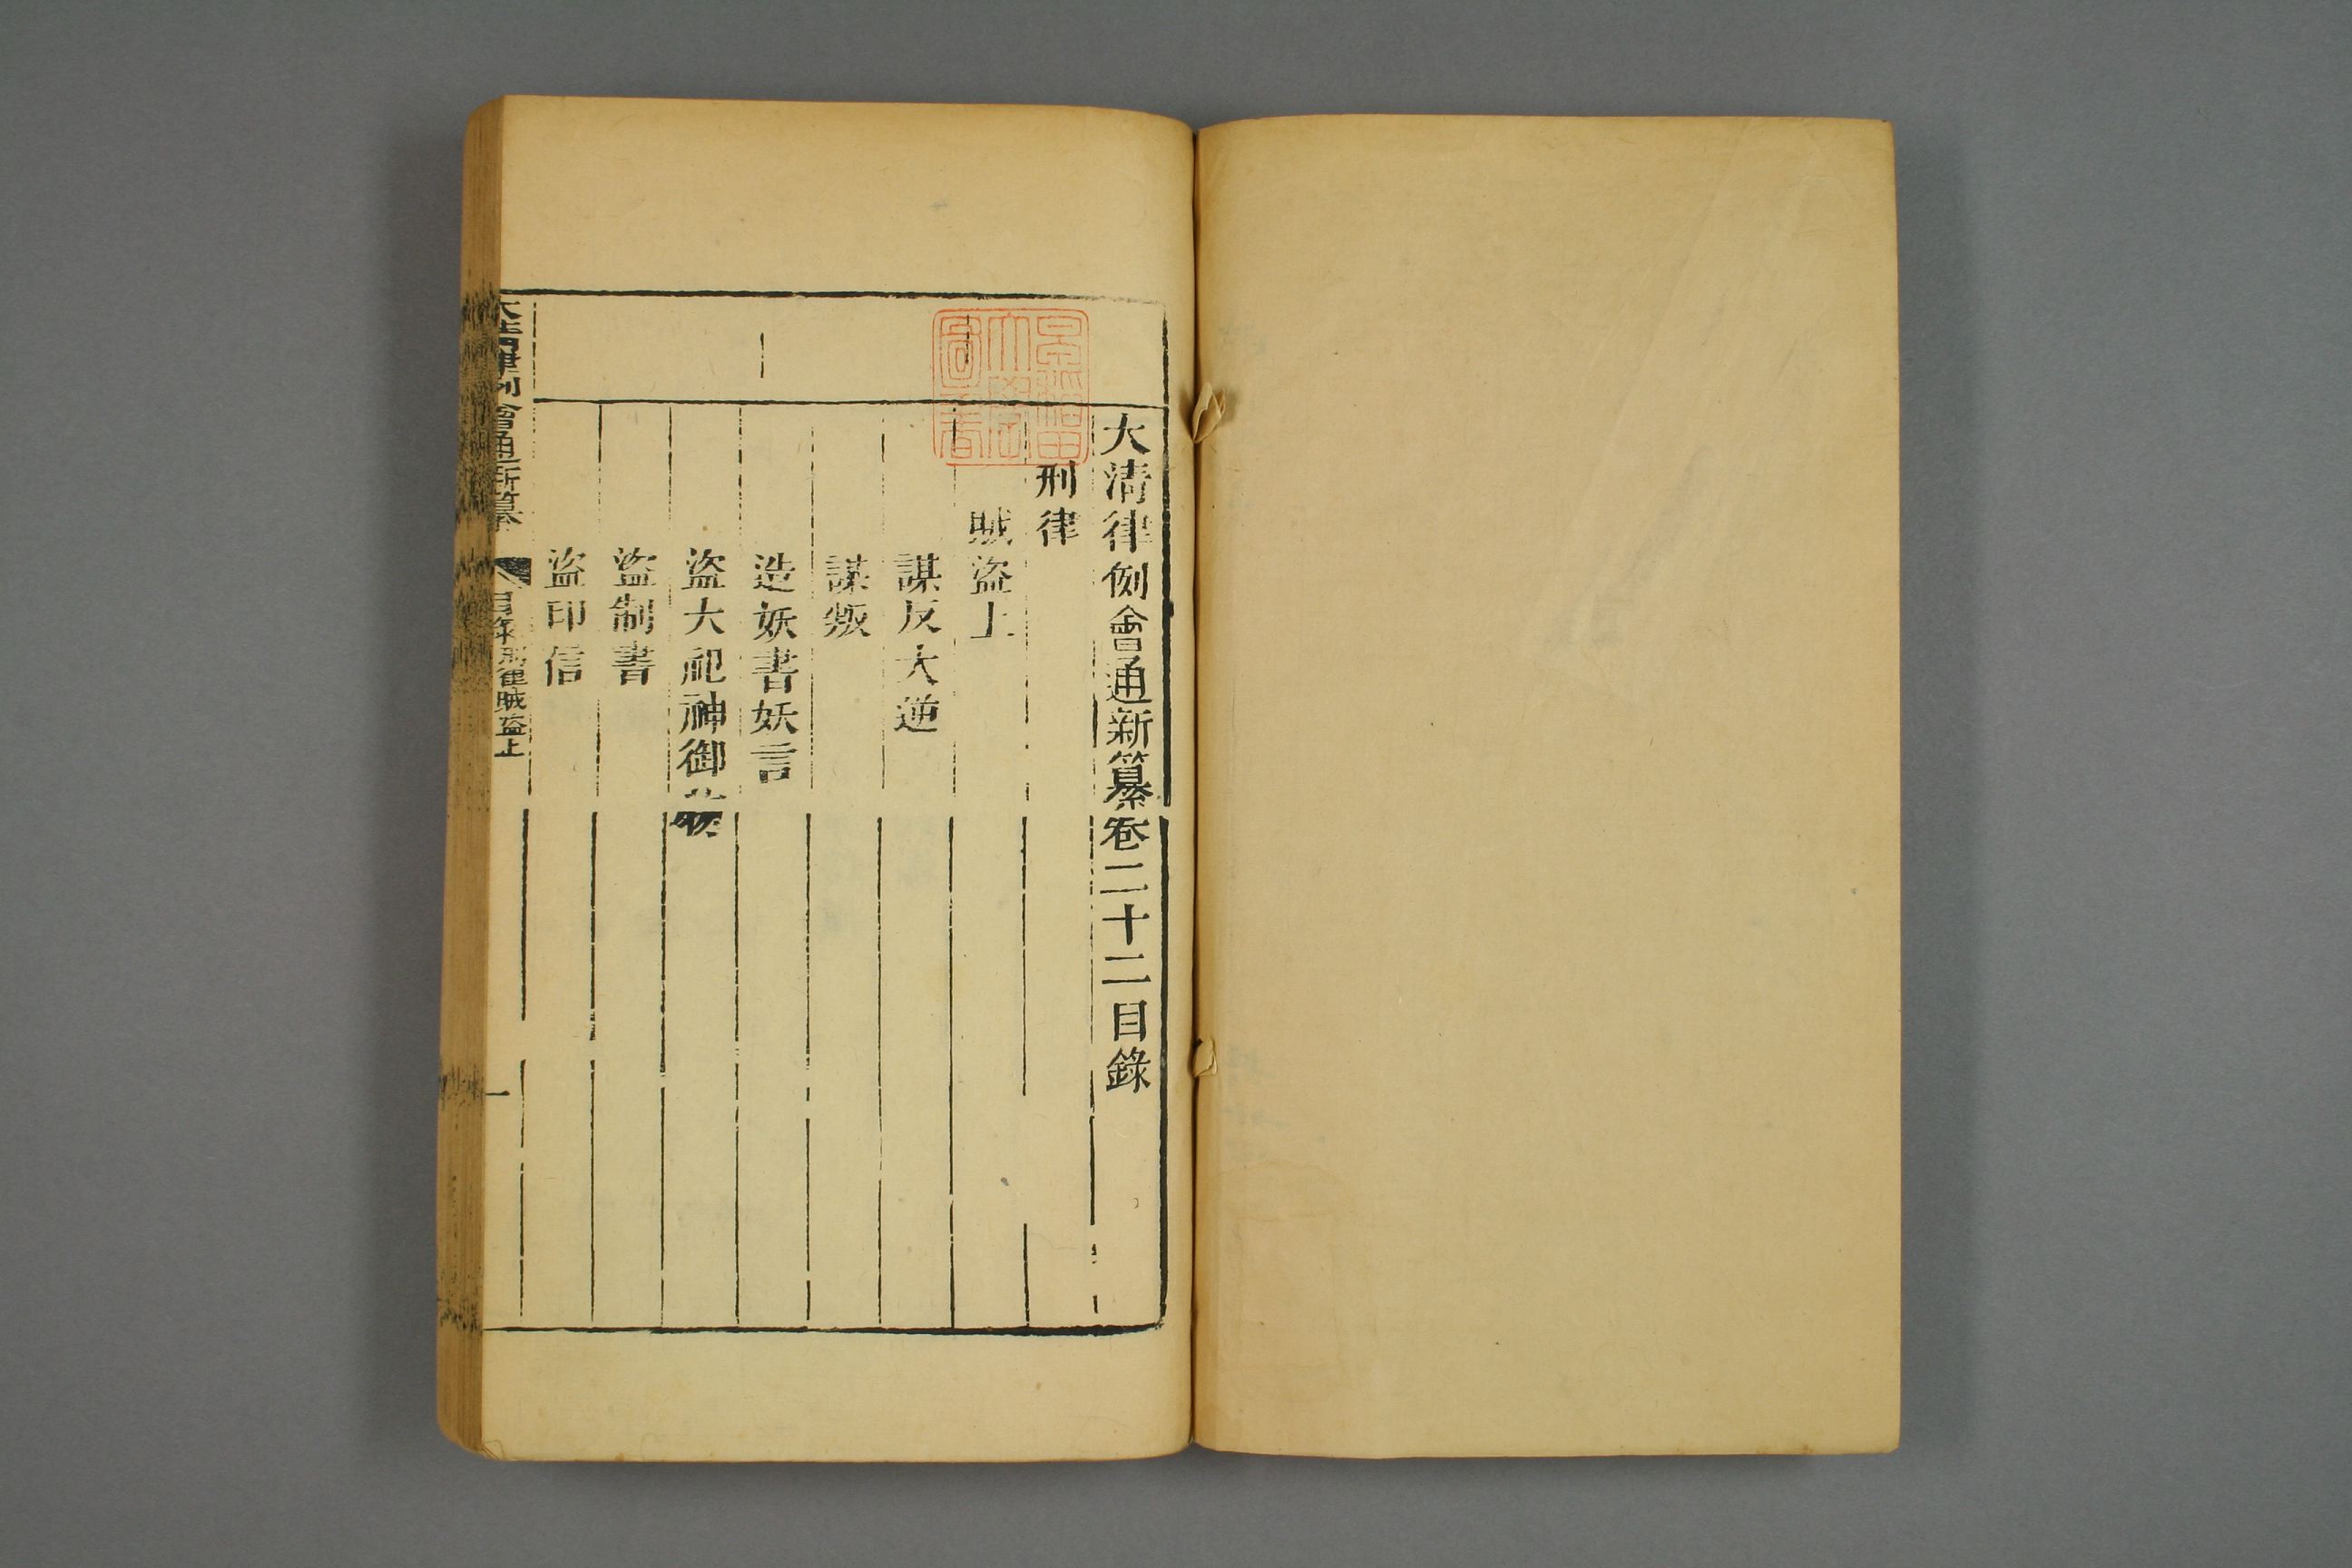 大清律例會通新纂卷二十二目錄
刑律
賊盜上
謀反大逆
謀叛
造妖書妖言
盜大祀神御物
盜制書
盜印信
大清律例會通新纂 目錄 刑律賊盜上 一